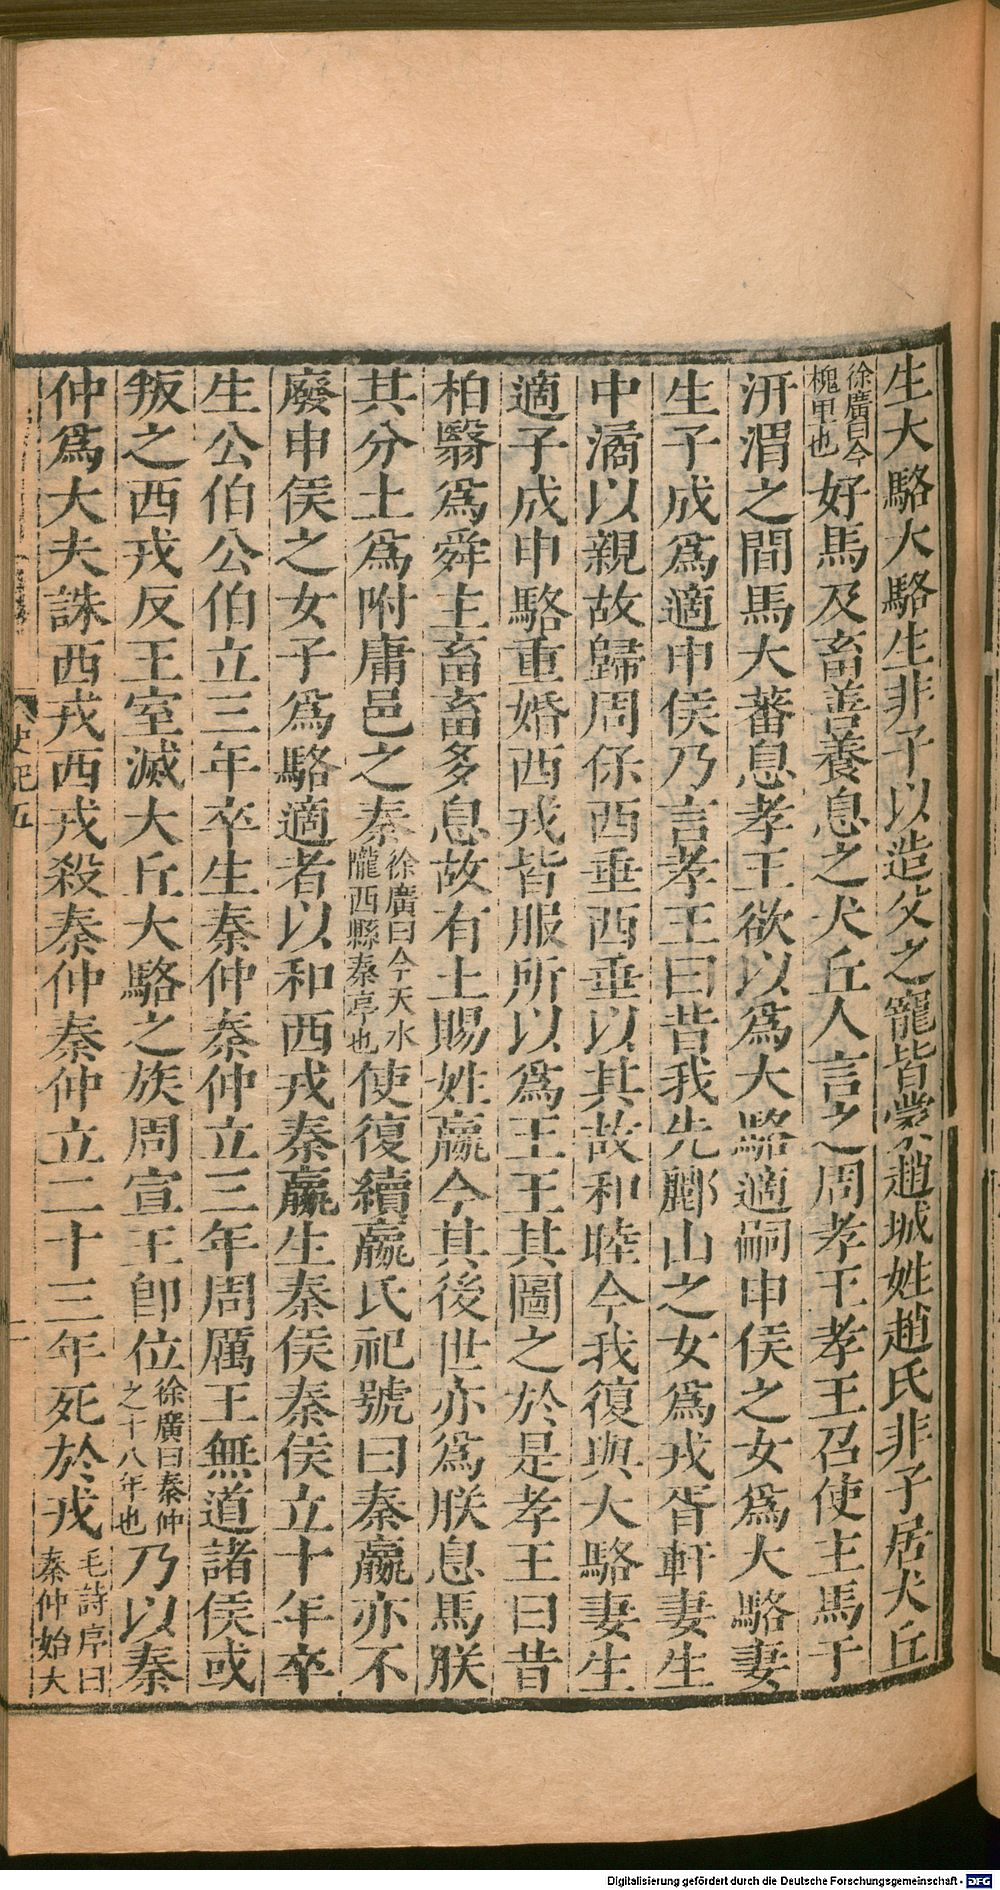 生大駱大駱生非子以造父之寵皆蒙趙城姓趙氏非子居犬丘
徐廣曰今槐里也好馬及畜善養息之犬丘人言之周孝王孝王召使主馬于
汧渭之間馬大蕃息孝王欲以爲大駱適嗣申侯之女爲大駱妻
生子成爲適申侯乃言孝王曰昔我先酈山之女爲戎胥軒妻生
中潏以親故歸周保西垂西垂以其故和睦今我復與大駱妻生
適子成申駱重婚西戎皆服所以爲王王其圖之於是孝王曰昔
柏翳爲舜主畜畜多息故有土賜姓嬴今其後世亦爲朕息馬朕
其分土爲附庸邑之秦徐廣曰今天水隴西縣秦亭也使復續嬴氏祀號曰秦嬴亦不
廢申侯之女子爲駱適者以和西戎秦嬴生秦侯秦侯立十年卒
生公伯公伯立三年卒生秦仲秦仲立三年周厲王無道諸侯或
叛之西戎反王室滅犬丘大駱之族周宣王卽位徐廣曰秦仲之十八年也乃以秦
仲爲大夫誅西戎西戎殺秦仲秦仲立二十三年死於戎毛詩序曰秦仲始大
史記五
Digitalisierung gefördert durch die Deutsche Forschungsgemeinschaft - DFG